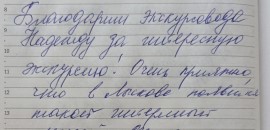 Благодарим экскурсовода
Надежду за интересную
экскурсию! Очень приятно,
что в Лысьве появился
такой интересный